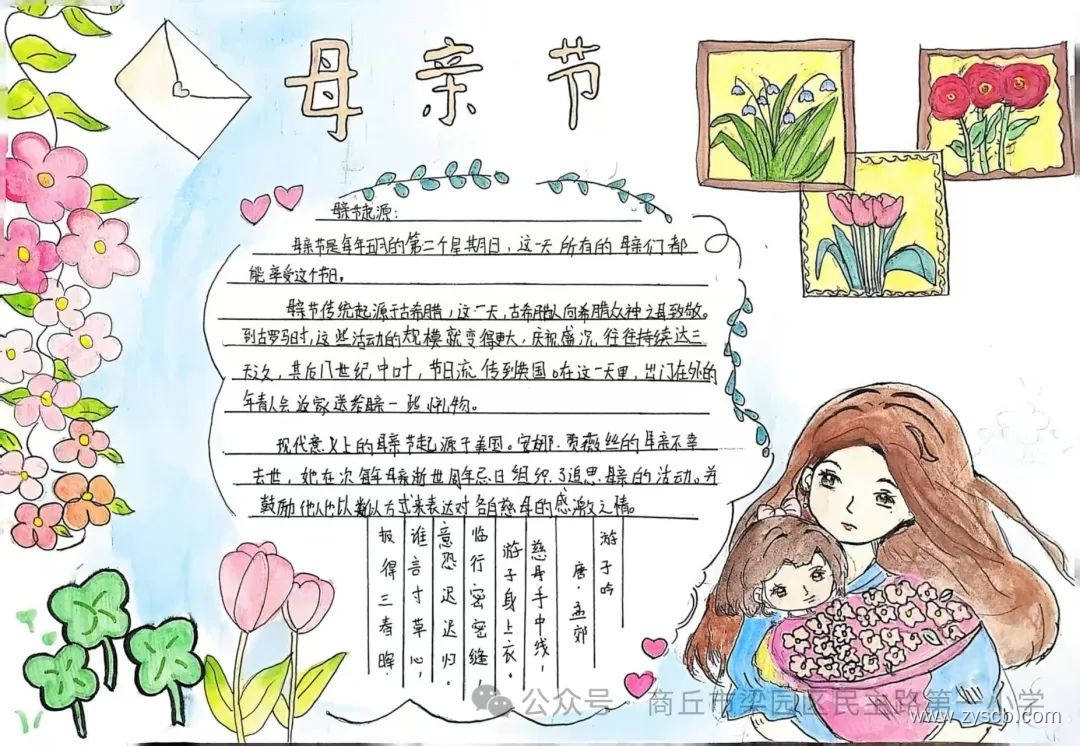 母亲节
母亲节起源:
母亲节是每年五月的第二个星期日，这一天所有的母亲们都
能享受这个节日。
母亲节传统起源于古希腊，这一天，古希腊人向希腊众神之母致敬。
到古罗马时，这些活动的规模就变得更大，庆祝盛况往往持续达三
天之久，其后17世纪中叶，节日流传到英国。在这一天里，出门在外的
年青人会返家送给母亲一些小礼物。
现代意义上的母亲节起源于美国。安娜·贾薇丝的母亲不幸
去世，她在次年母亲逝世周年忌日组织了追思母亲的活动。并
鼓励他人也以类似方式来表达对各自慈母的感激之情。
游子吟
唐·孟郊
慈母手中线，
游子身上衣。
临行密密缝，
意恐迟迟归。
谁言寸草心，
报得三春晖。
公众号·商丘市梁园区民主路第一小学
www.zyscb.com